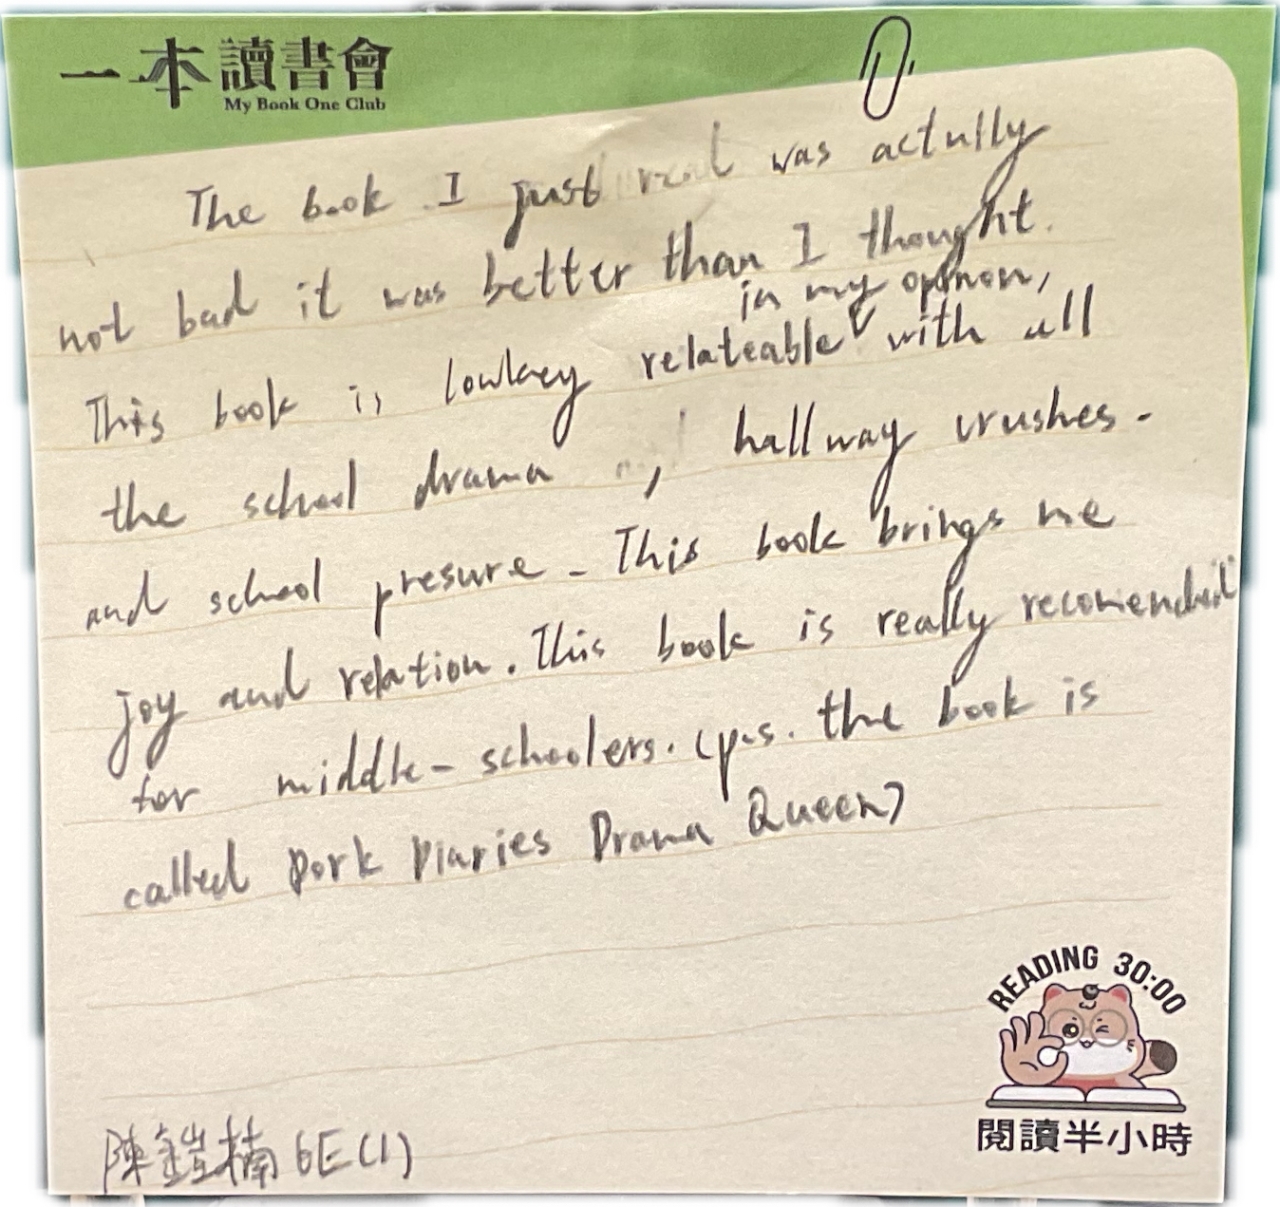 一本讀書會
My Book One Club
The book I just read was actully
not bad it was better than I thought.
in my opinon,
This book is lowkey relateable with all
the school drama , hallway crushes.
and school presure. This book brings me
joy and relation. This book is really recomended
for middle-schoolers. (p.s. the book is
called Dork Diaries Drama Queen)
READING 30:00
閱讀半小時
陳鎧楠 6E(1)